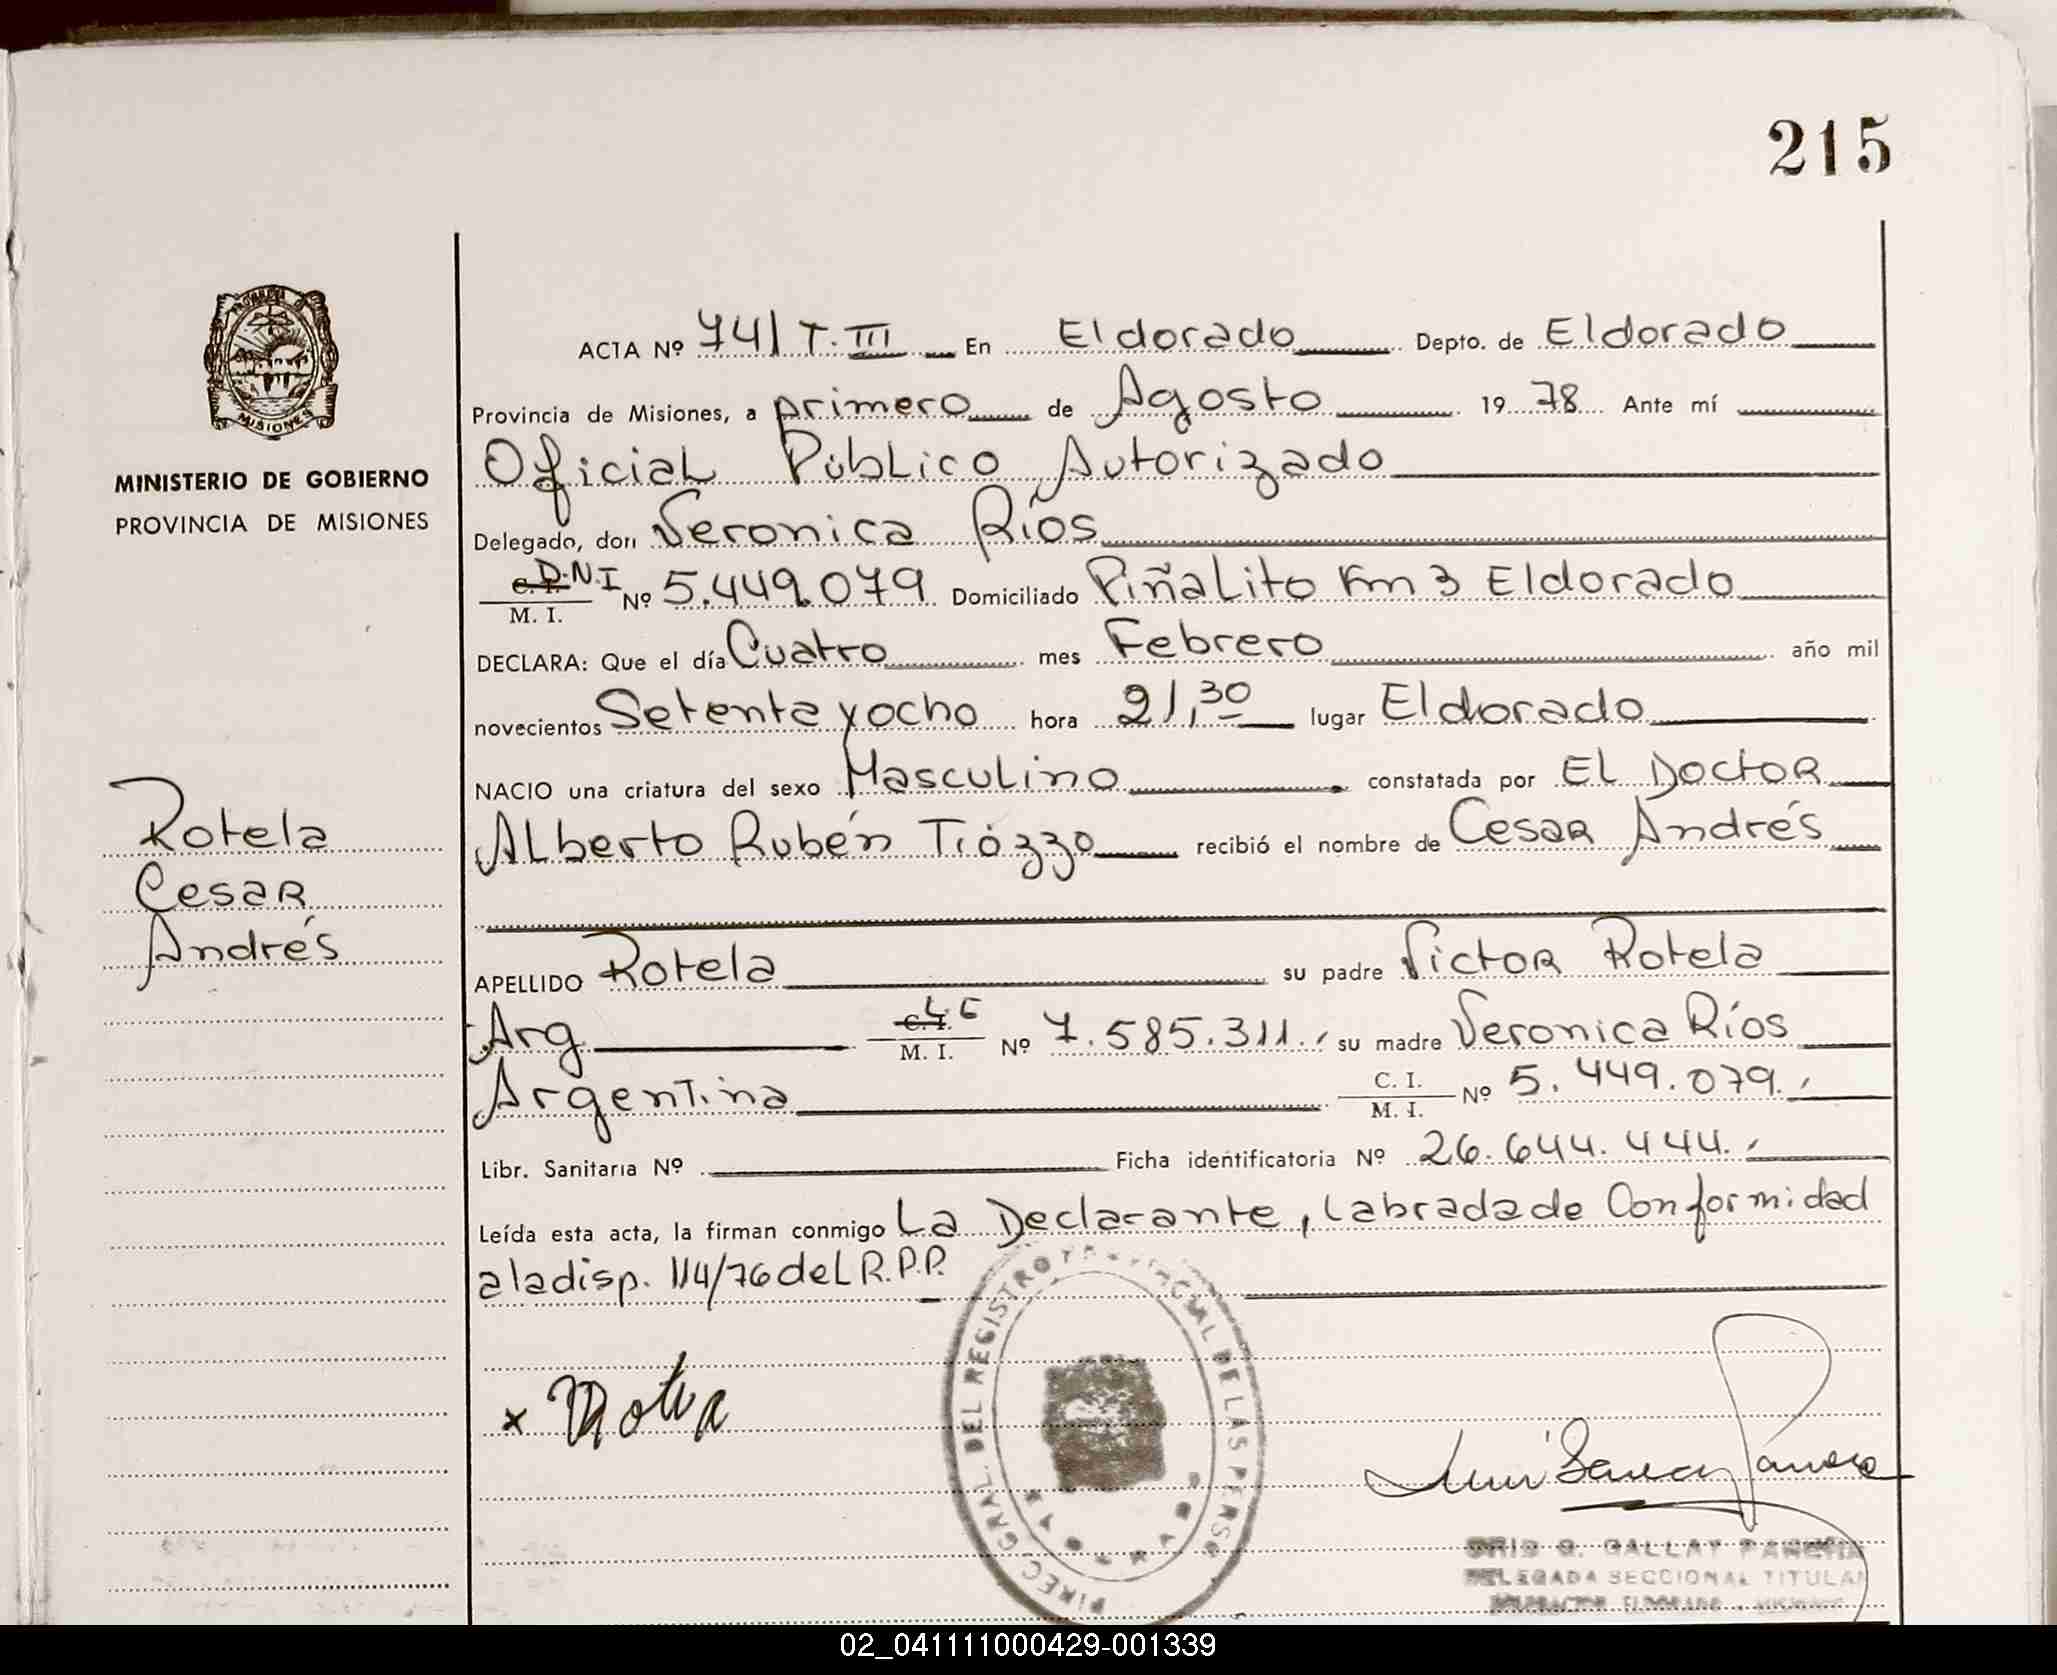 215
ACTA Nº 741 T. III En Eldorado Depto. de Eldorado
Provincia de Misiones, a primero de Agosto 1978 Ante mí
Oficial Público Autorizado
Delegado, don Veronica Ríos
D.N.I C. I. M. I. Nº 5.449.079 Domiciliado Piñalito Km 3 Eldorado
DECLARA: Que el día Cuatro mes Febrero año mil
novecientos Setenta y ocho hora 21,30 lugar Eldorado
NACIO una criatura del sexo Masculino constatada por El Doctor
Alberto Rubén Tiózzo recibió el nombre de Cesar Andrés
APELLIDO Rotela su padre Victor Rotela
Arg. C. I. M. I. Nº 7.585.311. su madre Veronica Ríos
Argentina C. I. M. I. Nº 5.449.079.
Libr. Sanitaria Nº Ficha identificatoria Nº 26.644.444.
Leída esta acta, la firman conmigo La Declarante, labrada de Conformidad
a la disp. 114/76 del R.P.P.
MISIONES
MINISTERIO DE GOBIERNO
PROVINCIA DE MISIONES
Rotela
Cesar
Andrés
x
DIREC. GRAL. DEL REGISTRO PROVINCIAL DE LAS PERS
GALLAY
DELEGADA SECCIONAL TITULAR
02_041111000429-001339